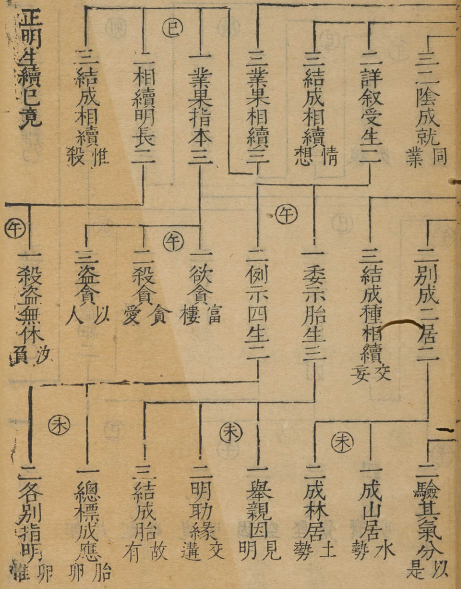 三二陰成就 同業
二詳叙受生二
三結成相續 情想
三業果相續三
一業果指本三
巳
二相續明長二
三結成相續 惟殺
正明生續已竟
二別成二居二
三結成種相續 交妄
一委示胎生三
午
二例示四生二
一欲貪 富樓
午
二殺貪 貪愛
三盜貪 以人
一殺盜無休 汝負
午
二驗其氣分 以是
一成山居 水勢
未
二成林居 土勢
一舉親因 見明
未
二明助緣 交遘
三結成胎 故有
一總標成應 胎卵
未
二各別指明 卵惟